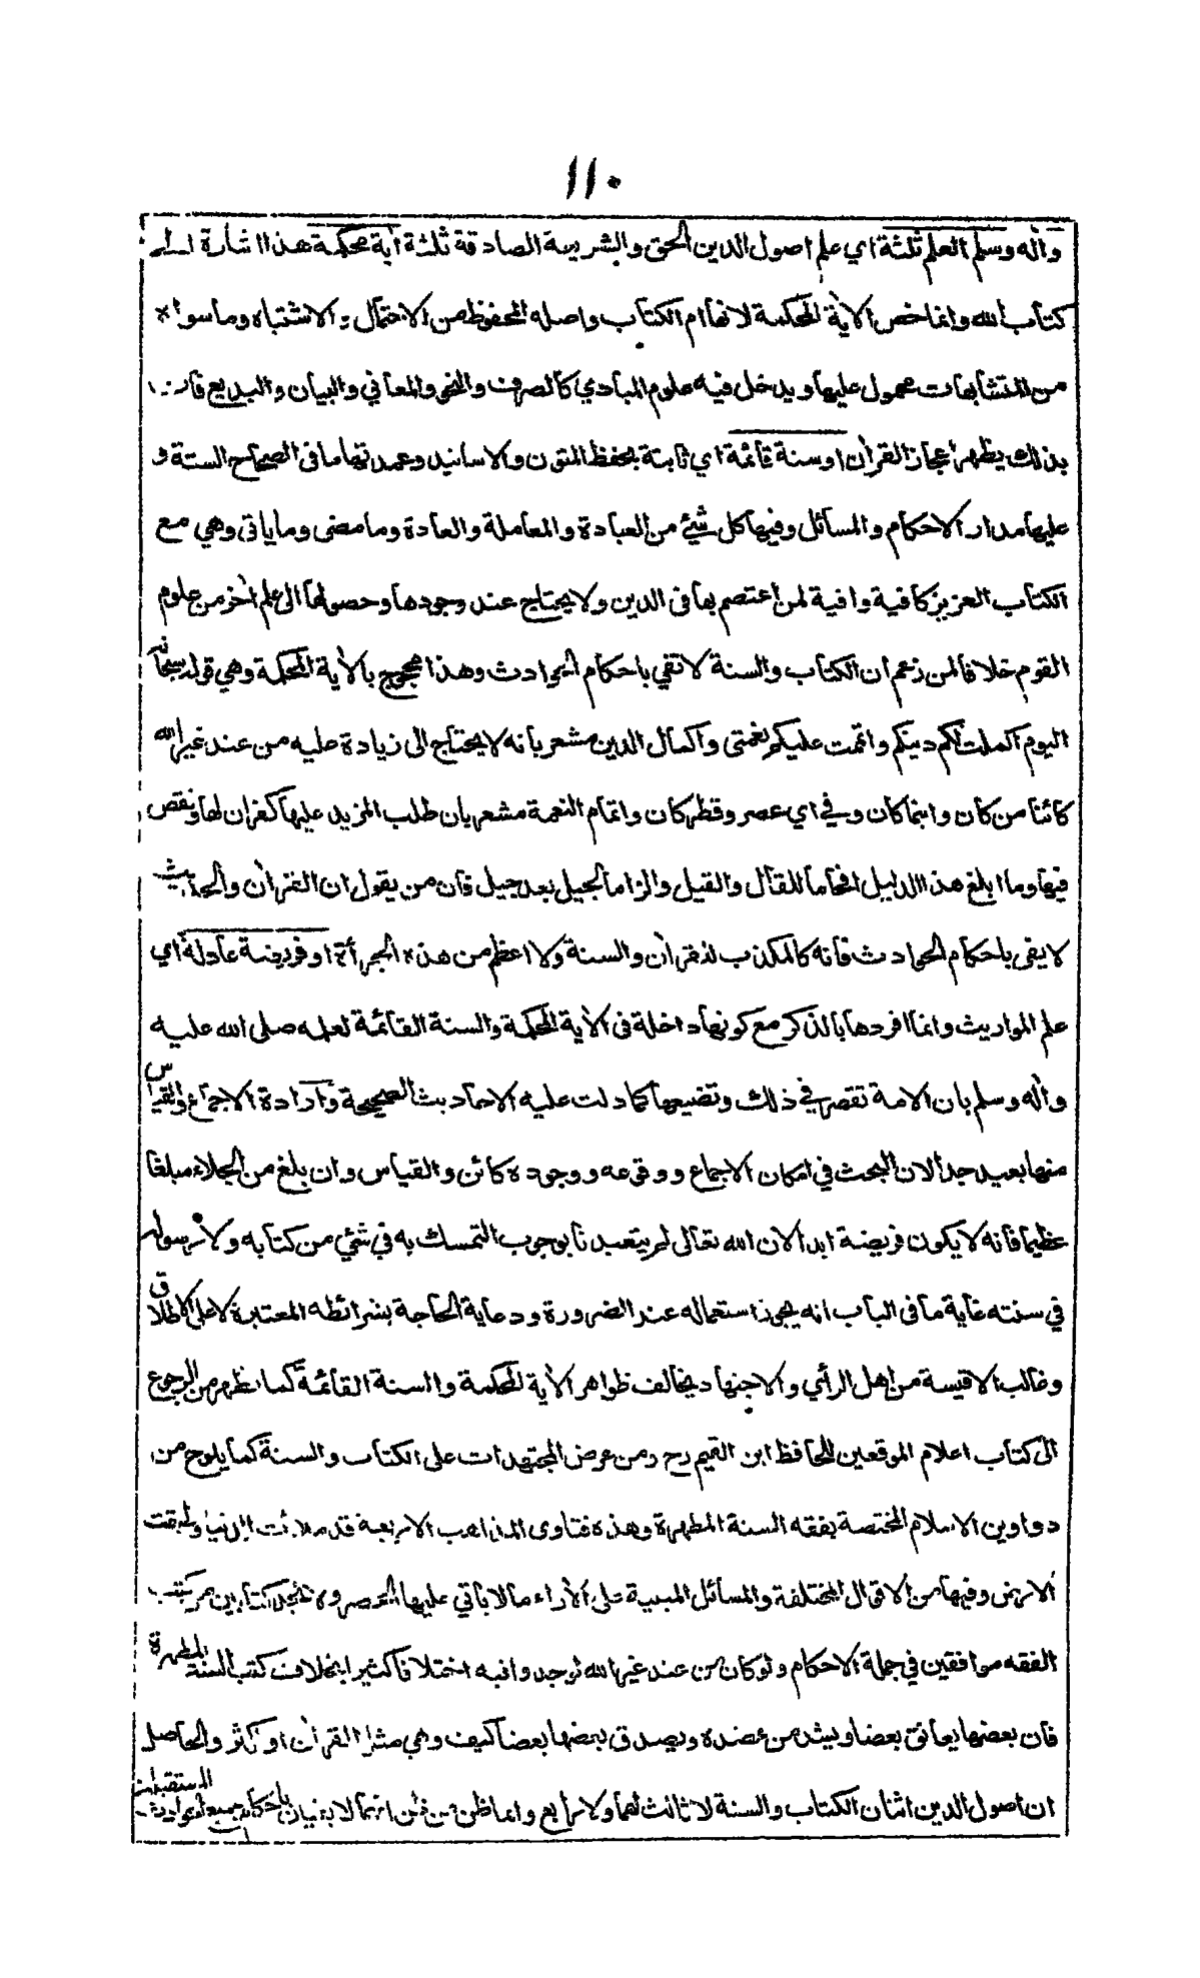 ١١٠
وآله وسلم العلم ثلثة اي علم اصول الدين الحق والشريعة الصادقة ثلثة آية محكمة هذا اشارة الى
كتاب الله وانما خص الآية المحكمة لانها ام الكتاب واصله المحفوظ من الاحتمال والاشتباه وما سواه
من المتشابهات محمول عليها ويدخل فيه علوم المبادي كالصرف والنحو والمعاني والبيان والبديع فان
بذلك يظهر اعجاز القرآن او سنة قائمة اي ثابتة بحفظ المتون والاسانيد وعمدتها ما في الصحاح الستة و
عليها مدار الاحكام والمسائل وفيها كل شيئ من العبادة والمعاملة والعادة وما مضى وما ياتى وهي مع
الكتاب العزيز كافية وافية لمن اعتصم بها فى الدين ولا يحتاج عند وجودها وحصولها الى علم آخر من علوم
القوم خلافا لمن زعم ان الكتاب والسنة لا تفي باحكام الحوادث وهذا محجوج بالآية المحكمة وهي قوله سبحانه
اليوم اكملت لكم دينكم واتممت عليكم نعمتى واكمال الدين مشعر بانه لا يحتاج الى زيادة عليه من عند غير الله
كائنا من كان واينما كان وفي اي عصر وقطر كان واتمام النعمة مشعر بان طلب المزيد عليها كفران لها ونقص
فيها وما ابلغ هذا الدليل افحاما للقال والقيل والزاما لجيل بعد جيل فان من يقول ان القرآن والحديث
لا يفى باحكام الحوادث فانه كالمكذب للقرآن والسنة ولا اعظم من هذه الجرأة او فريضة عادلة اي
علم المواريث وانما افردها بالذكر مع كونها داخلة فى الآية المحكمة والسنة القائمة لعلمه صلى الله عليه
وآله وسلم بان الامة تقصر في ذلك وتضيعها كما دلت عليه الاحاديث الصحيحة وارادة الاجماع والقياس
منها بعيد جدا لان البحث في امكان الاجماع ووقوعه ووجوده كائن والقياس وان بلغ من الجلاء مبلغا
عظيما فانه لا يكون فريضة ابدا لان الله تعالى لم يتعبدنا بوجوب التمسك به في شيئ من كتابه ولا رسوله
في سنته غاية ما فى الباب انه يجوز استعماله عند الضرورة ودعاية الحاجة بشرائطه المعتبرة لا على الاطلاق
وغالب الاقيسة من اهل الرأي والاجتهاد يخالف ظواهر الآية المحكمة والسنة القائمة كما يظهر من الرجوع
الى كتاب اعلام الموقعين للحافظ ابن القيم رح ومن عرض المجتهدات على الكتاب والسنة كما يلوح من
دواوين الاسلام المختصة بفقه السنة المطهرة وهذه فتاوى المذاهب الاربعة قد ملأت الدنيا وطبقت
الارض وفيها من الاقوال المختلفة والمسائل المبنية على الآراء ما لا ياتي عليها الحصر ولا تجد كتابين من كتب
الفقه موافقين في جملة الاحكام ولو كان من عند غير الله لوجدوا فيه اختلافا كثيرا بخلاف كتب السنة المطهرة
فان بعضها يعانق بعضا ويشد من عضده ويصدق بعضها بعضا كيف وهي مثل القرآن او اكثر والحاصل
ان اصول الدين اثنان الكتاب والسنة لا ثالث لهما ولا رابع وانما ظن من ظن انهما لا يفيان باحكام جميع الحوادث المستقبلات